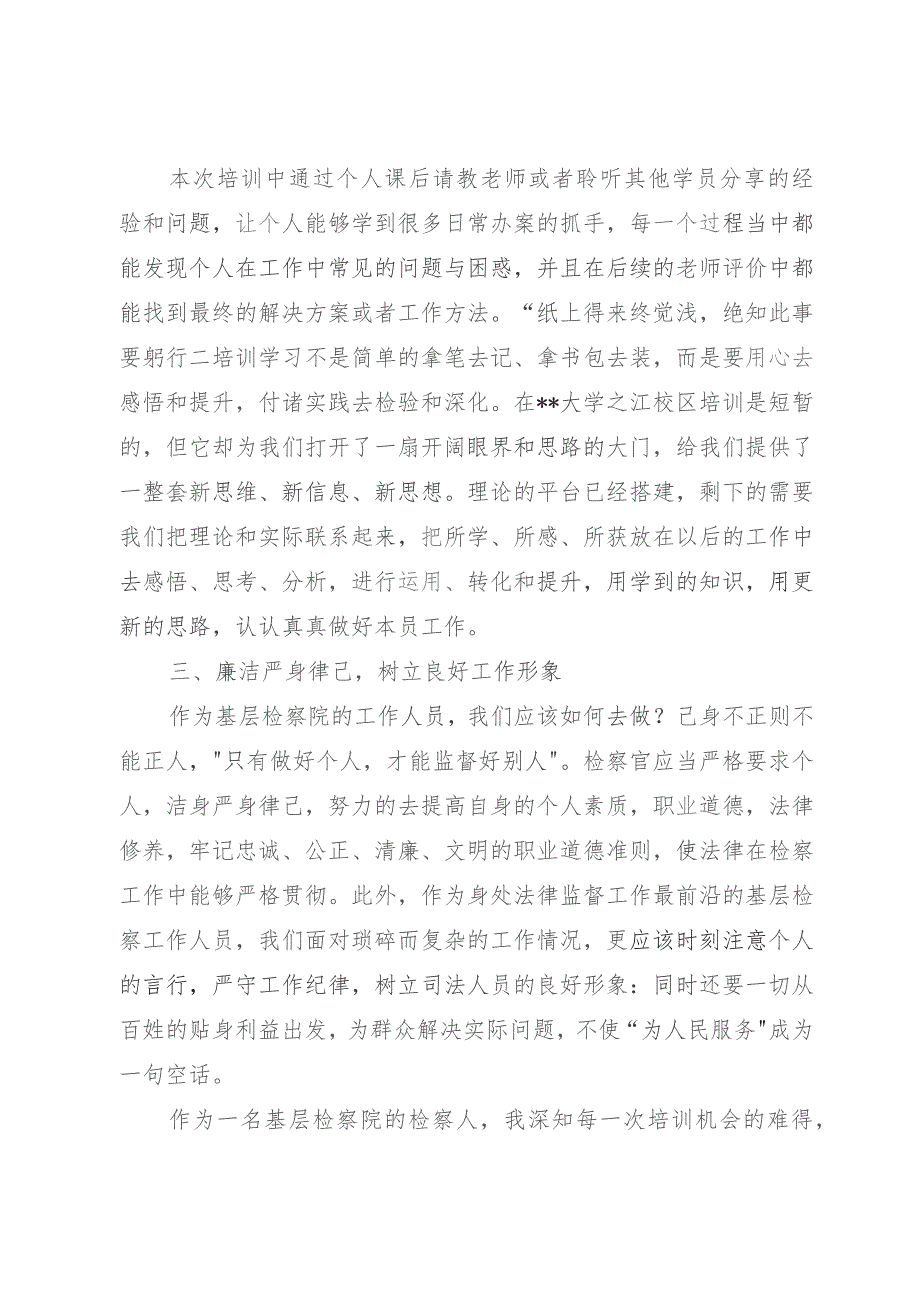 本次培训中通过个人课后请教老师或者聆听其他学员分享的经
验和问题，让个人能够学到很多日常办案的抓手，每一个过程当中都
能发现个人在工作中常见的问题与困惑，并且在后续的老师评价中都
能找到最终的解决方案或者工作方法。“纸上得来终觉浅，绝知此事
要躬行二培训学习不是简单的拿笔去记、拿书包去装，而是要用心去
感悟和提升，付诸实践去检验和深化。在**大学之江校区培训是短暂
的，但它却为我们打开了一扇开阔眼界和思路的大门，给我们提供了
一整套新思维、新信息、新思想。理论的平台已经搭建，剩下的需要
我们把理论和实际联系起来，把所学、所感、所获放在以后的工作中
去感悟、思考、分析，进行运用、转化和提升，用学到的知识，用更
新的思路，认认真真做好本员工作。
三、廉洁严身律己，树立良好工作形象
作为基层检察院的工作人员，我们应该如何去做？己身不正则不
能正人，"只有做好个人，才能监督好别人"。检察官应当严格要求个
人，洁身严身律己，努力的去提高自身的个人素质，职业道德，法律
修养，牢记忠诚、公正、清廉、文明的职业道德准则，使法律在检察
工作中能够严格贯彻。此外，作为身处法律监督工作最前沿的基层检
察工作人员，我们面对琐碎而复杂的工作情况，更应该时刻注意个人
的言行，严守工作纪律，树立司法人员的良好形象：同时还要一切从
百姓的贴身利益出发，为群众解决实际问题，不使“为人民服务"成为
一句空话。
作为一名基层检察院的检察人，我深知每一次培训机会的难得，